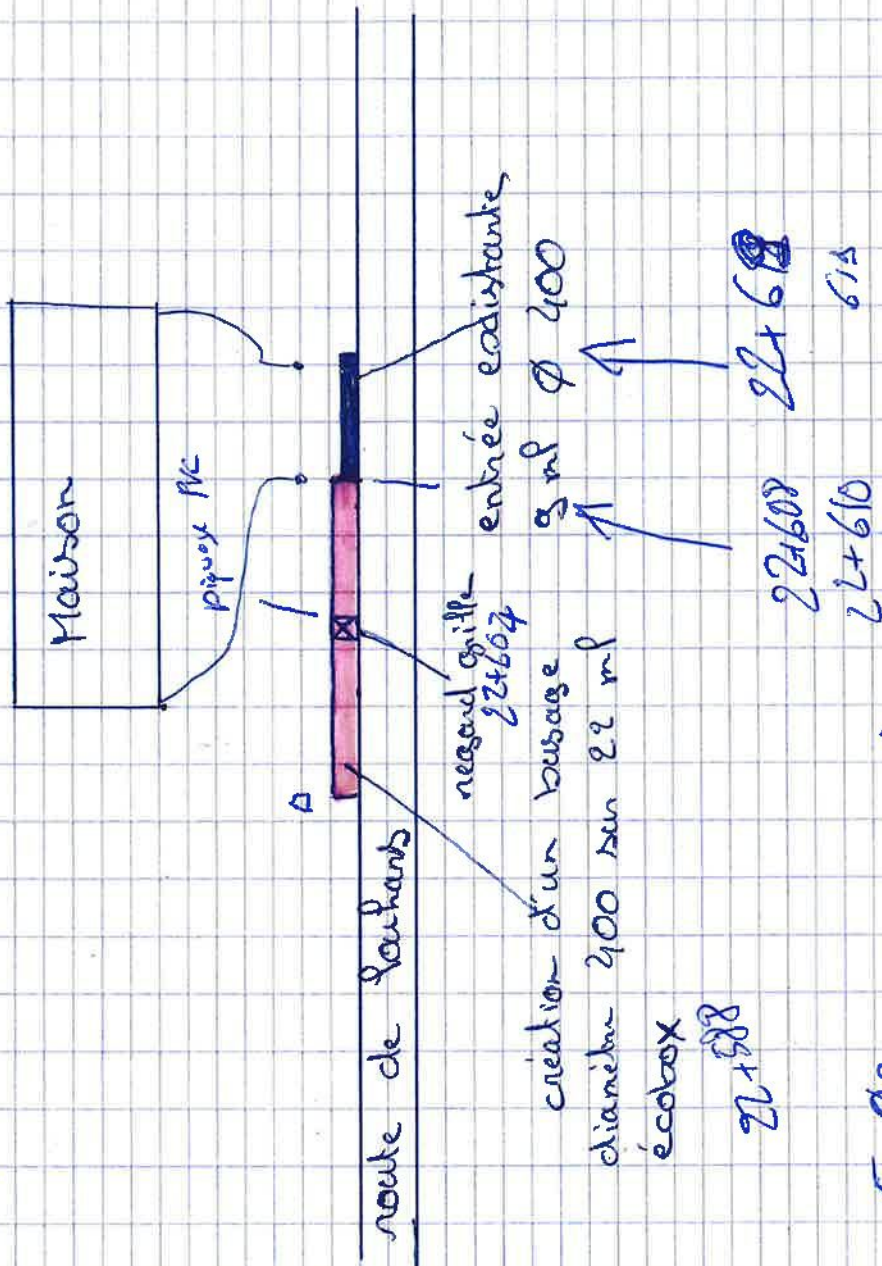 Maison
piquage PVC
D
route de Louhans
regard grille
22+604
entrée existante
9 ml Ø 400
création d'un busage
diamètre 400 sur 22 ml
écobox
22+588
22+608
22+610
22+61
619